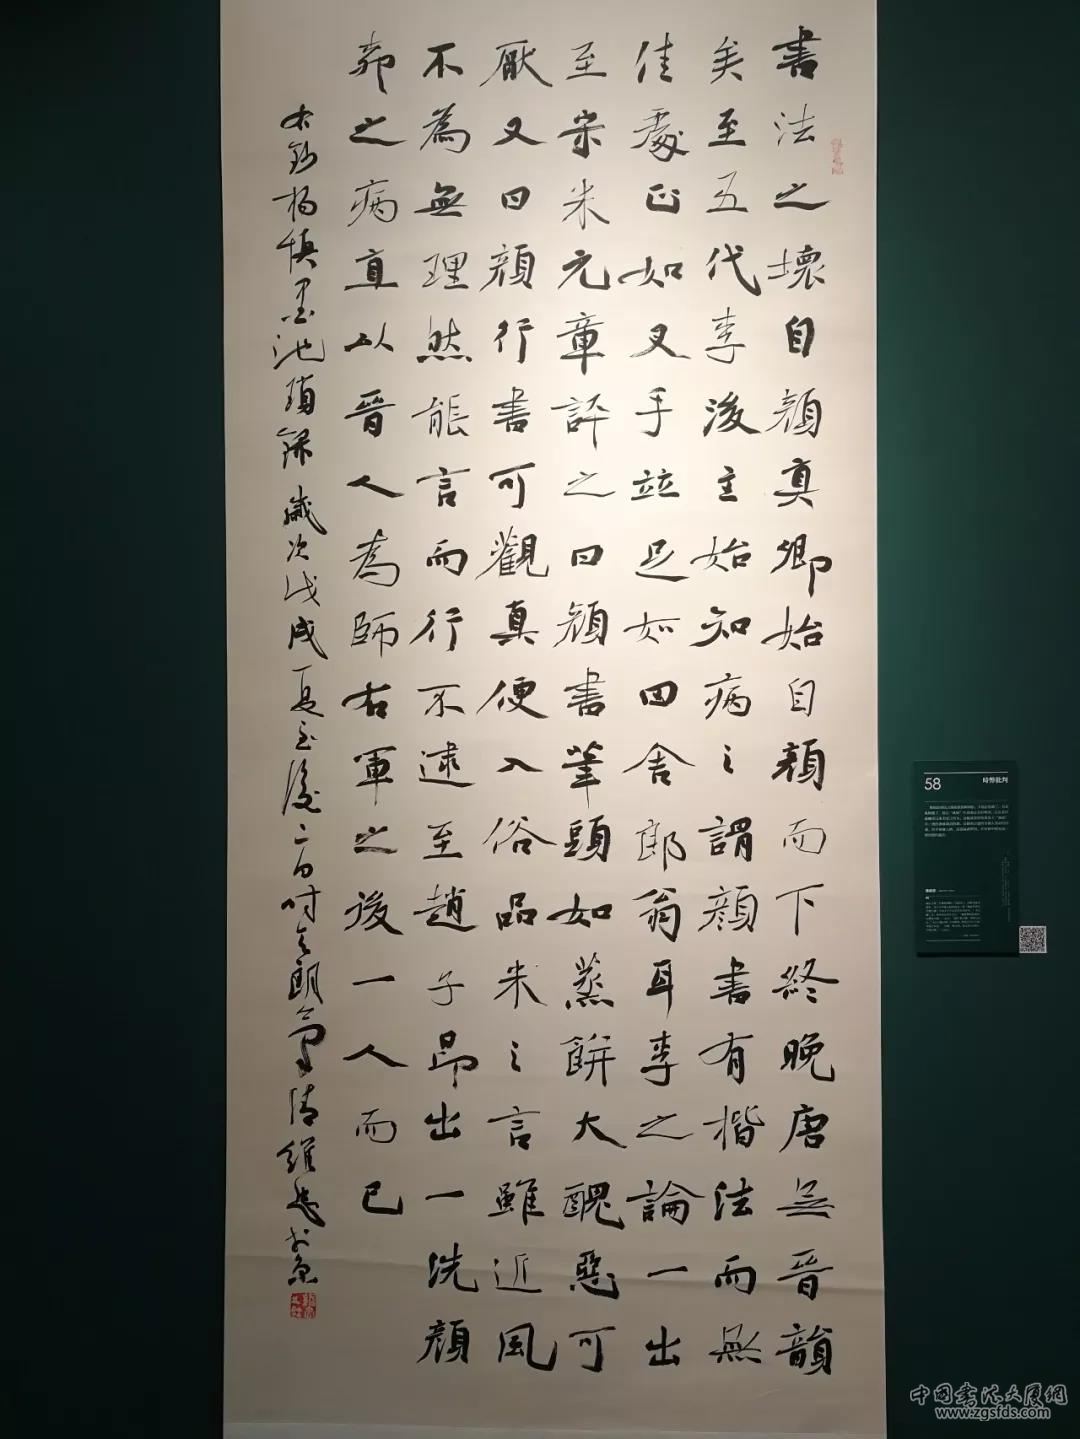 書法之壞自顏真卿始自顏而下終晚唐無晉韻
矣至五代李後主始知病之謂顏書有楷法而無
佳處正如叉手並足如田舍郎翁耳李之論一出
至宋米元章評之曰顏書筆頭如蒸餅大醜惡可
厭又曰顏行書可觀真便入俗品米之言雖近風
不為無理然能言而行不逮至趙子昂出一洗顏
柳之病直以晉人為師右軍之後一人而已
右錄楊慎墨池瑣錄歲次戊戌夏至後二日時天朗氣清維
58
時弊批判
中國書法大廈網
www.zgsfds.com